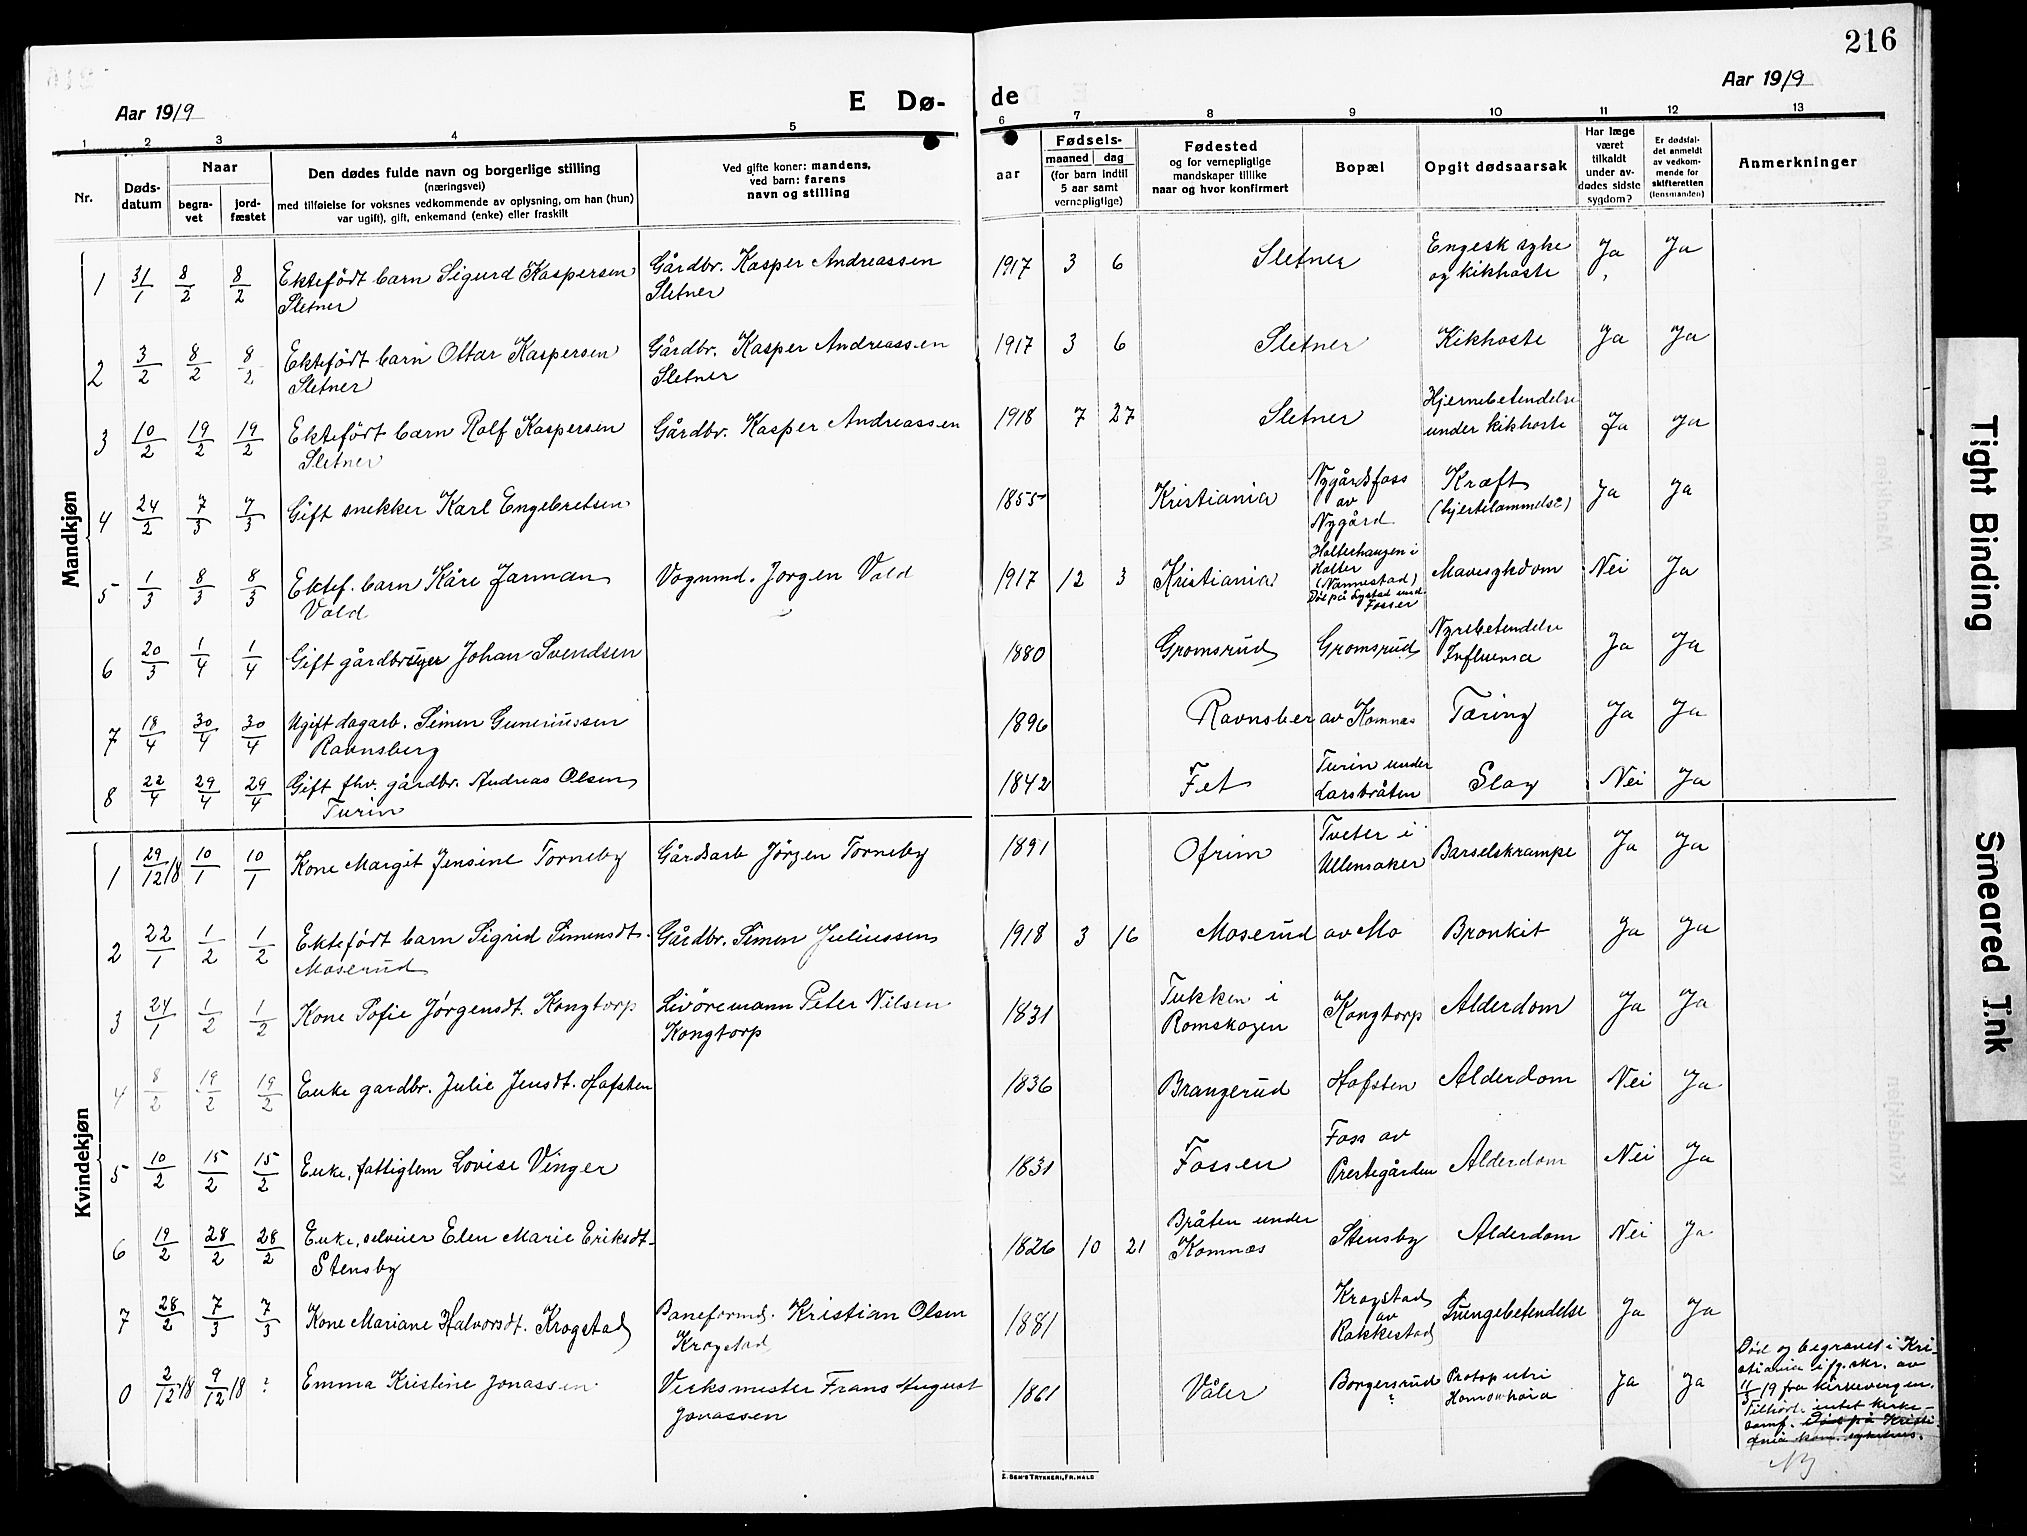 216
Aar 1919
E Dø-
de
Aar 1919
1 2 3 4 5 6 7 8 9 10 11 12 13
Nr.
Døds-
datum
Naar
begra-
vet
jord-
fæstet
Den dødes fulde navn og borgerlige stilling
(næringsvei)
med tilføielse for voksnes vedkommende av oplysning, om han (hun)
var ugift), gift, enkemand (enke) eller fraskilt
Ved gifte koner: mandens,
ved barn: farens
navn og stilling
aar
Fødsels-
maaned dag
(for barn indtil
5 aar samt
vernepligtige)
Fødested
og for vernepligtige
mandskaper tillike
naar og hvor konfirmert
Bopæl
Opgit dødsaarsak
Har læge
været
tilkaldt
under av-
dødes sidste
sygdom?
Er dødsfal-
det anmeldt
av vedkom-
mende for
skifteretten
(lensmanden)
Anmerkninger
Mandkjøn
1 31/1 8/2 8/2 Ektefödt barn Sigurd Kaspersen Gårdbr. Kasper Andreassen 1917 3 6 Sletner Engesk syke Ja Ja
Sletner Sletner og kikhoste
2 3/2 8/2 8/2 Ektefödt barn Ottar Kaspersen Gårdbr. Kasper Andreassen 1917 3 6 Sletner Kikhoste Ja Ja
Sletner Sletner
3 10/2 19/2 19/2 Ektefört barn Rolf Kaspersen Gårdbr. Kasper Andreassen 1918 7 27 Sletner Hjernebetendelse Ja Ja
Sletner under kikhoste
4 24/2 7/3 7/3 Gift snekker Karl Engebretsen 1855 Kristiania Nygårdsfoss Kræft Ja Ja
av (hjertelammelse)
Nygård
5 1/3 8/3 8/3 Ektef. barn Kåre Jarman Vognmd. Jorgen Vold 1917 12 3 Kristiania Holterhaugen i Mavesykdom Nei Ja
Vold Holter
(Nannestad)
Död på Lystad und.
Fosser
6 20/3 1/4 1/4 Gift gårdbruger Johan Svendsen 1880 Gromsrud Gromsrud Nyrebetendelse Ja Ja
Influensa
7 18/4 30/4 30/4 Ugift dagarb. Simen Guneriussen 1896 Ravnsber av Komnæs Tæring Ja Ja
Ravnsberg
8 22/4 29/4 29/4 Gift fhv. gårdbr. Andreas Olsen 1842 Fet Turin under Slag Nei Ja
Turin Larsbråten
Kvindekjøn
1 29/12 18 10/1 10/1 Kone Margit Jensine Torneby Gårdsarb Jörgen Torneby 1891 Ofrim Tveter i Barselskrampe Ja Ja
Ullensaker
2 22/1 1/2 1/2 Ektefödt barn Sigrid Simensdt. Gårdbr. Simen Juliussen 1918 3 16 Moserud av Mo Bronkit Ja Ja
Moserud
3 24/1 1/2 1/2 Kone Sofie Jörgensdt. Kongtorp Livöremann Peter Nilsen 1831 Tukken i Kongtorp Alderdom Ja Ja
Kongtorp Romskogen
4 8/2 19/2 19/2 Enke gardbr. Julie Jensdt. Hofsten 1836 Brangerud Hofsten Alderdom Nei Ja
5 10/2 15/2 15/2 Enke, fattiglem Lovise Vinger 1831 Fossen Foss av Alderdom Nei Ja
Prestegården
6 19/2 28/2 28/2 Enke, selveier Elen Marie Eriksdt. 1826 10 21 Bråten under Stensby Alderdom Nei Ja
Stensby Komnæs
7 28/2 7/3 7/3 Kone Mariane Halvorsdt. Krogstad Baneformd. Kristian Olsen 1881 Krogstad Lungebetendelse Ja Ja
Krogstad av
Rakkestad
0 2/12 18 9/12 18 ? Emma Kristine Jonassen Verksmester Frans August 1861 Våler Borgersrud Ja Ja
Jonassen ?
Död og begravet i Kri-
stiania i fg. skr. av
11/3 19 fra kirkevergen.
Tilhört intet kirke-
samf. Död på Kristi-
ania kom. sykehus.
E. SEM'S TRYKKERI, FR.HALD
Tight Binding
Smeared Ink